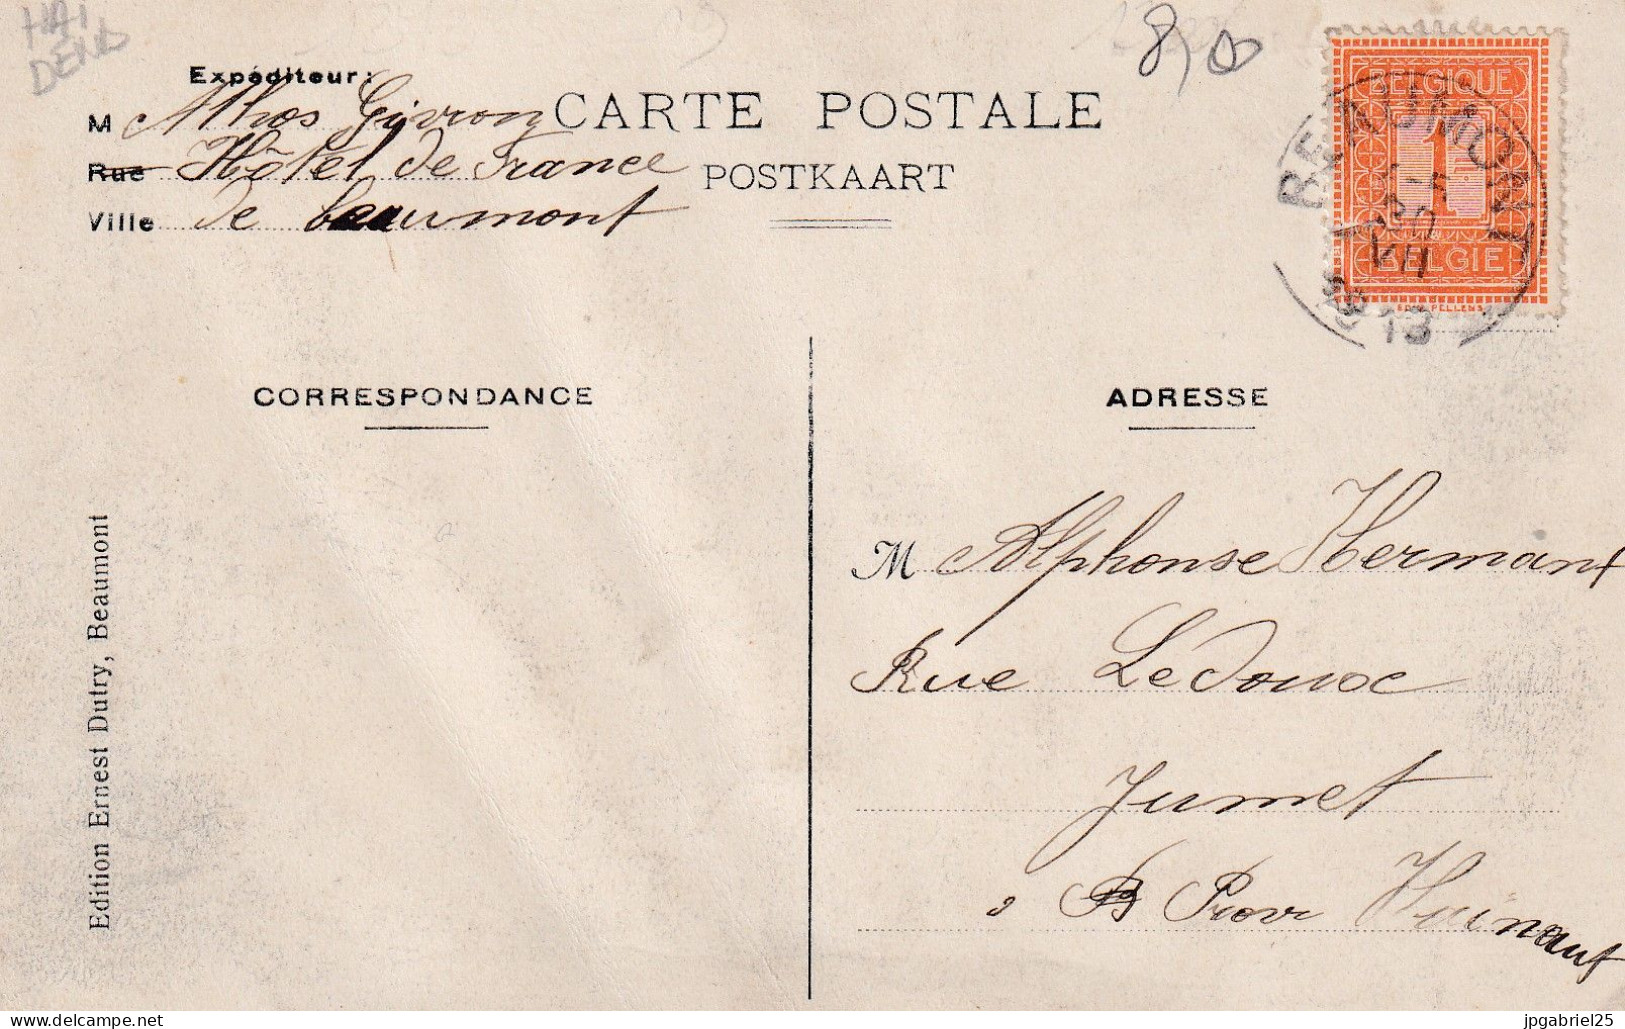 HAI
DEND
8,00
Expéditeur:
M Athos Givron
Rue Hôtel de France
Ville de beaumont
CARTE POSTALE
POSTKAART
BELGIQUE
1
BELGIE
BEAUMONT
30
VII
1913
CORRESPONDANCE
ADRESSE
M Alphonse Hermant
Rue Ledoux
Jumet
Prov Hainaut
Edition Ernest Dutry, Beaumont
jpgabriel25